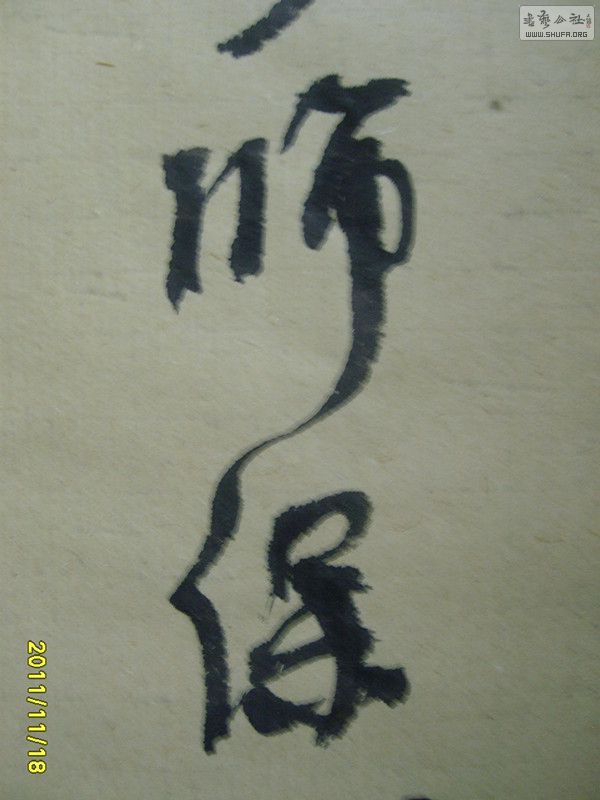 师保
书艺公社
WWW.SHUFA.ORG
2011/11/18